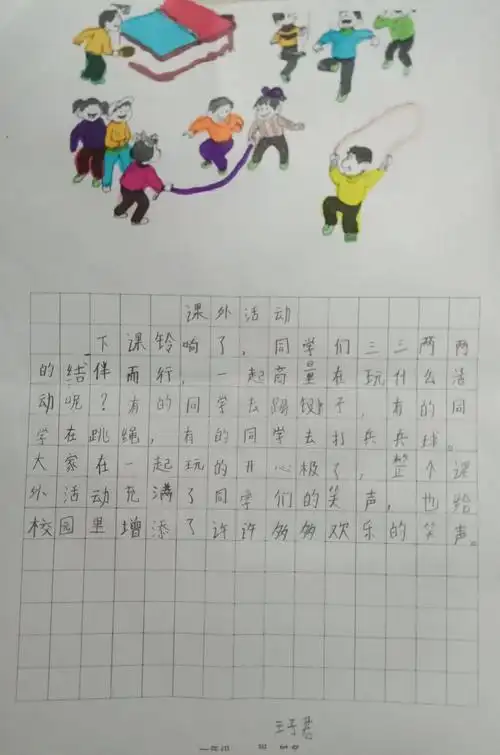 课外活动
下课铃响了，同学们三三两两
的结伴而行，一起商量在玩什么活
动呢？有的同学去踢毽子，有的同
学在跳绳，有的同学去打兵兵球。
大家在一起玩的开心极了，整个课
外活动充满了同学们的笑声，也给
校园里增添了许许多多欢乐的笑声。